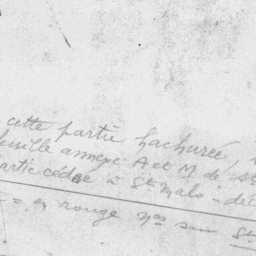 cette partie hachurée,
feuille annexe A et M de St
partie cédée à St Malo - dé
= en rouge nos sur St